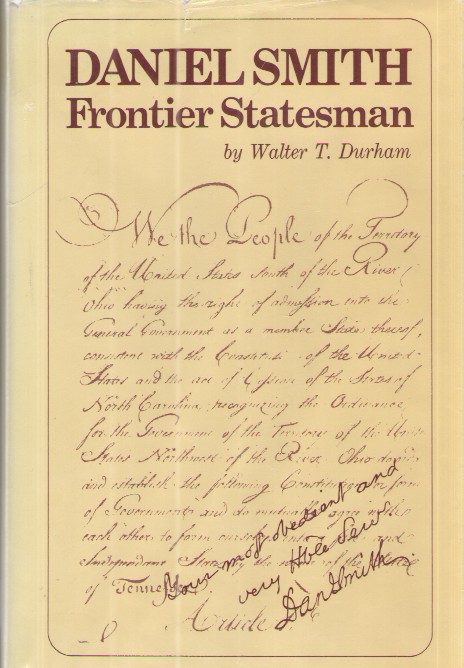 DANIEL SMITH
Frontier Statesman
by Walter T. Durham
We the People of the Territory
of the United States south of the River
Ohio having the right of admission into the
General Government as a member State thereof,
consistent with the Constituti of the United
States and the act of Cession of the State of
North Carolina recognizing the Ordinance
for the Government of the Territory of the
States Northwest of the River Ohio do
and establish the following Constitution or form
of Government and do mutually agree with
each other to form ourselves into and
Independent State by the name of the
of Tennessee.
Article
Your most obedient and
very Hble Serv
Danl Smith